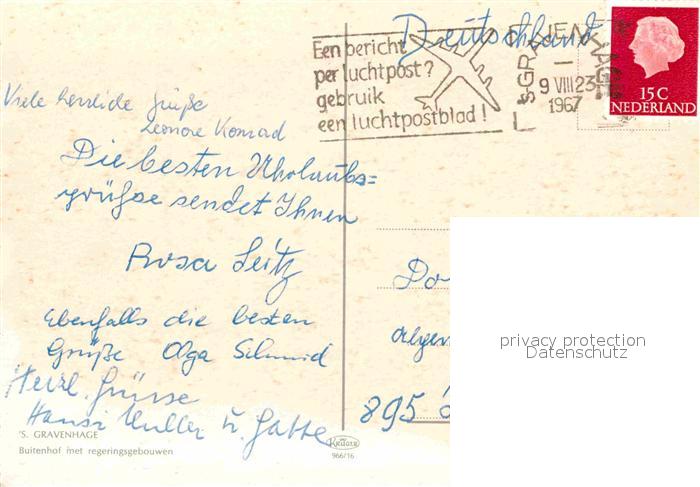 Deutschland
Een bericht
per luchtpost?
gebruik
een luchtpostblad!
's-GRAVENHAGE
9 VIII 23
1967
15 C
NEDERLAND
Viele herzliche Grüße
Leonore Konrad
Die besten Uhrlaubs=
grüße sendet Ihnen
Rosa Seitz
Ebenfalls die besten
Grüße Olga Schmid
Herzl. Grüsse
Hansi Müller u. Gatte
'S. GRAVENHAGE
Buitenhof met regeringsgebouwen
966/16
895
privacy protection
Datenschutz